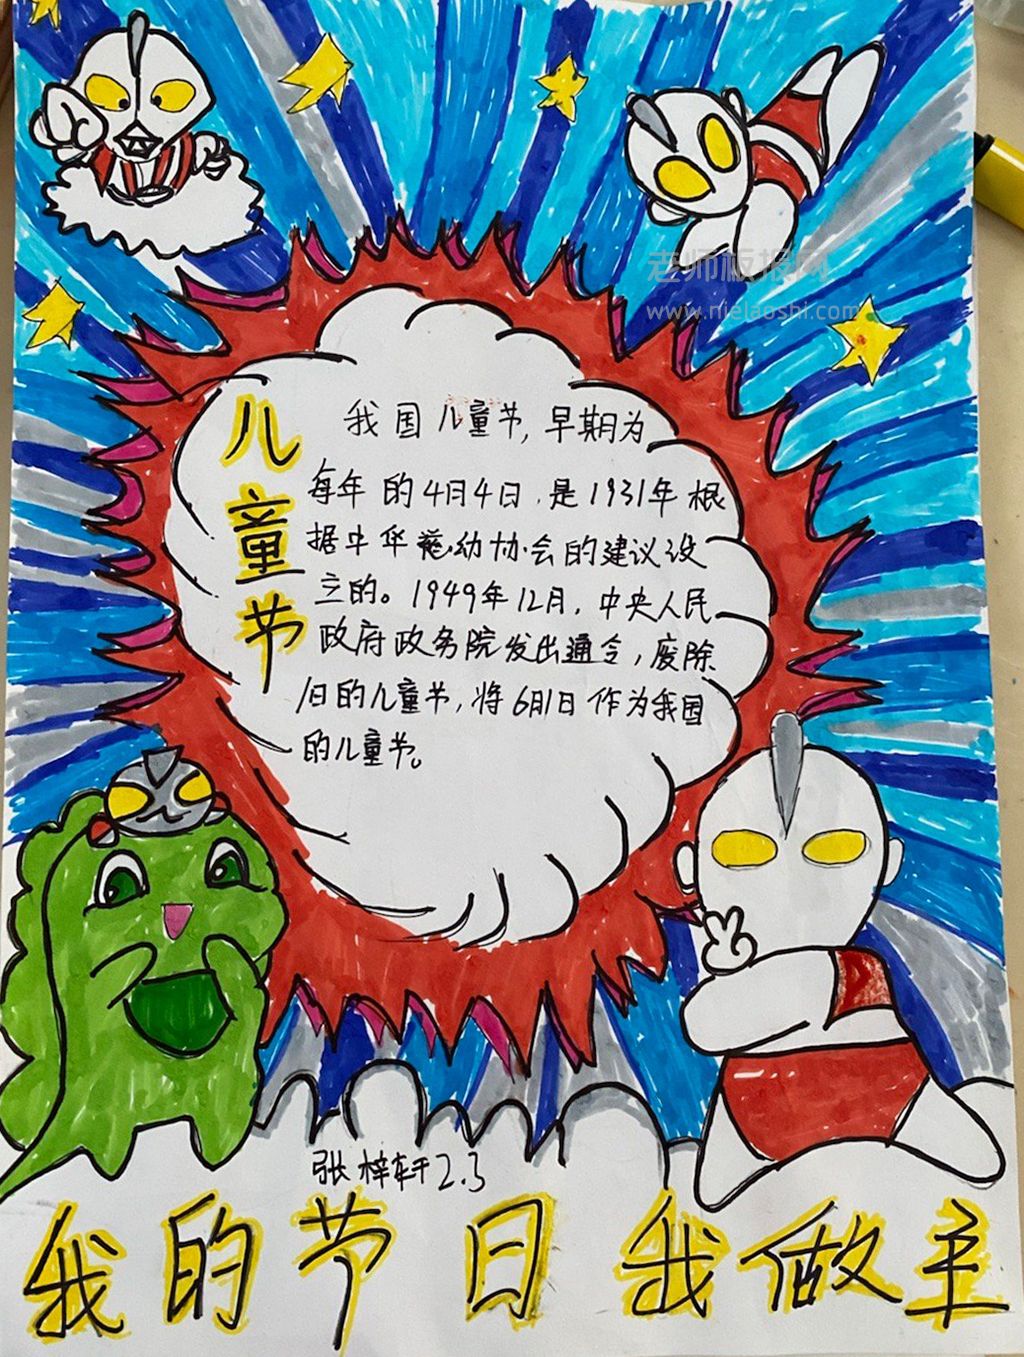 老师板报网
www.nielaoshi.com
儿童节
我国儿童节,早期为
每年的4月4日,是1931年根
据中华慈幼协会的建议设
立的。1949年12月,中央人民
政府政务院发出通令,废除
旧的儿童节,将6月1日作为我国
的儿童节。
张梓轩2.3
我的节日我做主